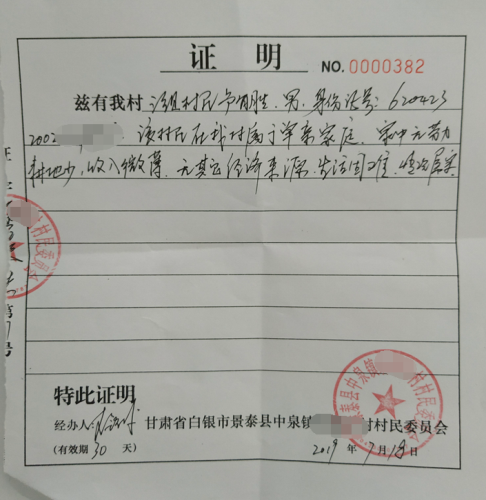 证明
NO. 0000382
兹有我村 组村民 男,身份证号:620423
2002 该村民在我村属于单亲家庭,家中无劳力
耕地少,收入微薄,无其它经济来源,生活困难,情况属实
特此证明
经办人 甘肃省白银市景泰县中泉镇 村村民委员会
(有效期30天) 2019年7月18日
村民委员会
第 号
景泰县中泉镇 村村民委员会